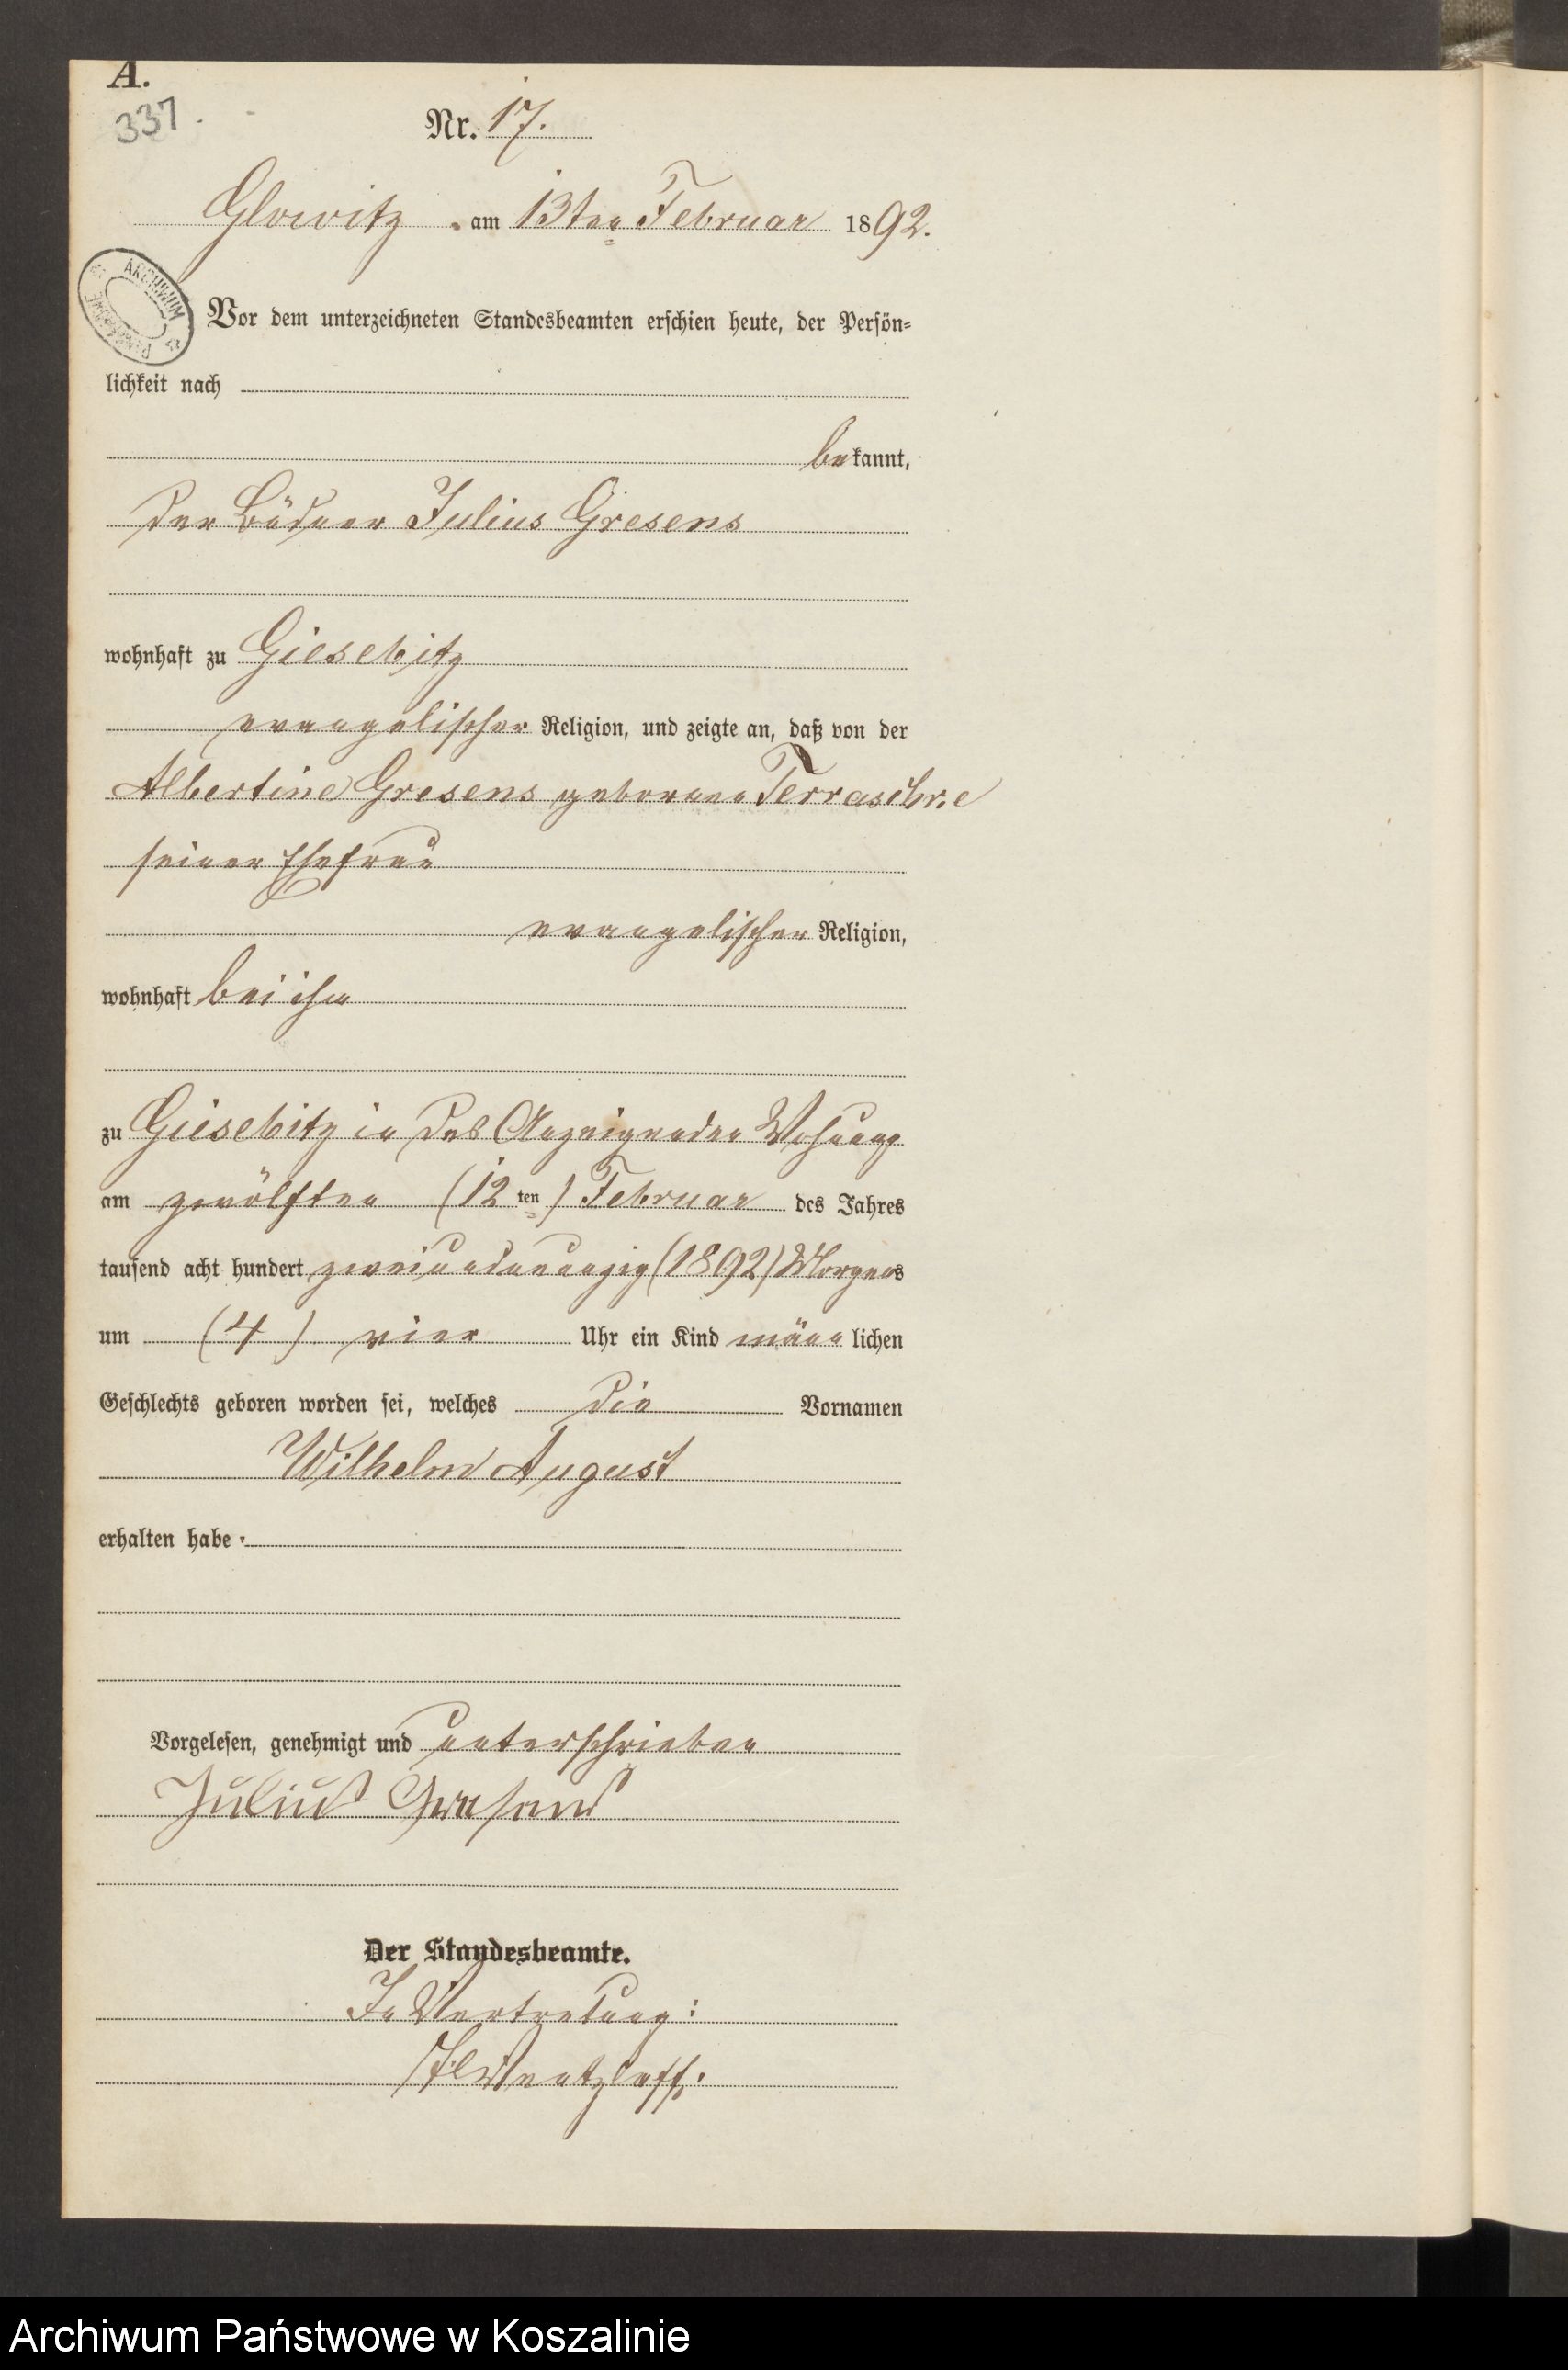 A.
337.
Nr. 17.
Glowitz am 13ten Februar 1892.
ARCHIWUM
Vor dem unterzeichneten Standesbeamten erschien heute, der Persön-
lichkeit nach
bekannt,
der Büdner Julius Gresens
wohnhaft zu Giesebitz
evangelischer Religion, und zeigte an, daß von der
Albertine Gresens geborene
seiner Ehefrau
evangelischer Religion,
wohnhaft bei ihm
zu Giesebitz in des Anzeigenden Wohnung
am zwölften (12ten) Februar des Jahres
tausend acht hundert zweiundneunzig (1892) Morgens
um (4) vier Uhr ein Kind männlichen
Geschlechts geboren worden sei, welches die Vornamen
Wilhelm August
erhalten habe.
Vorgelesen, genehmigt und unterschrieben
Julius Gresens
Der Standesbeamte.
In Vertretung:
Archiwum Państwowe w Koszalinie